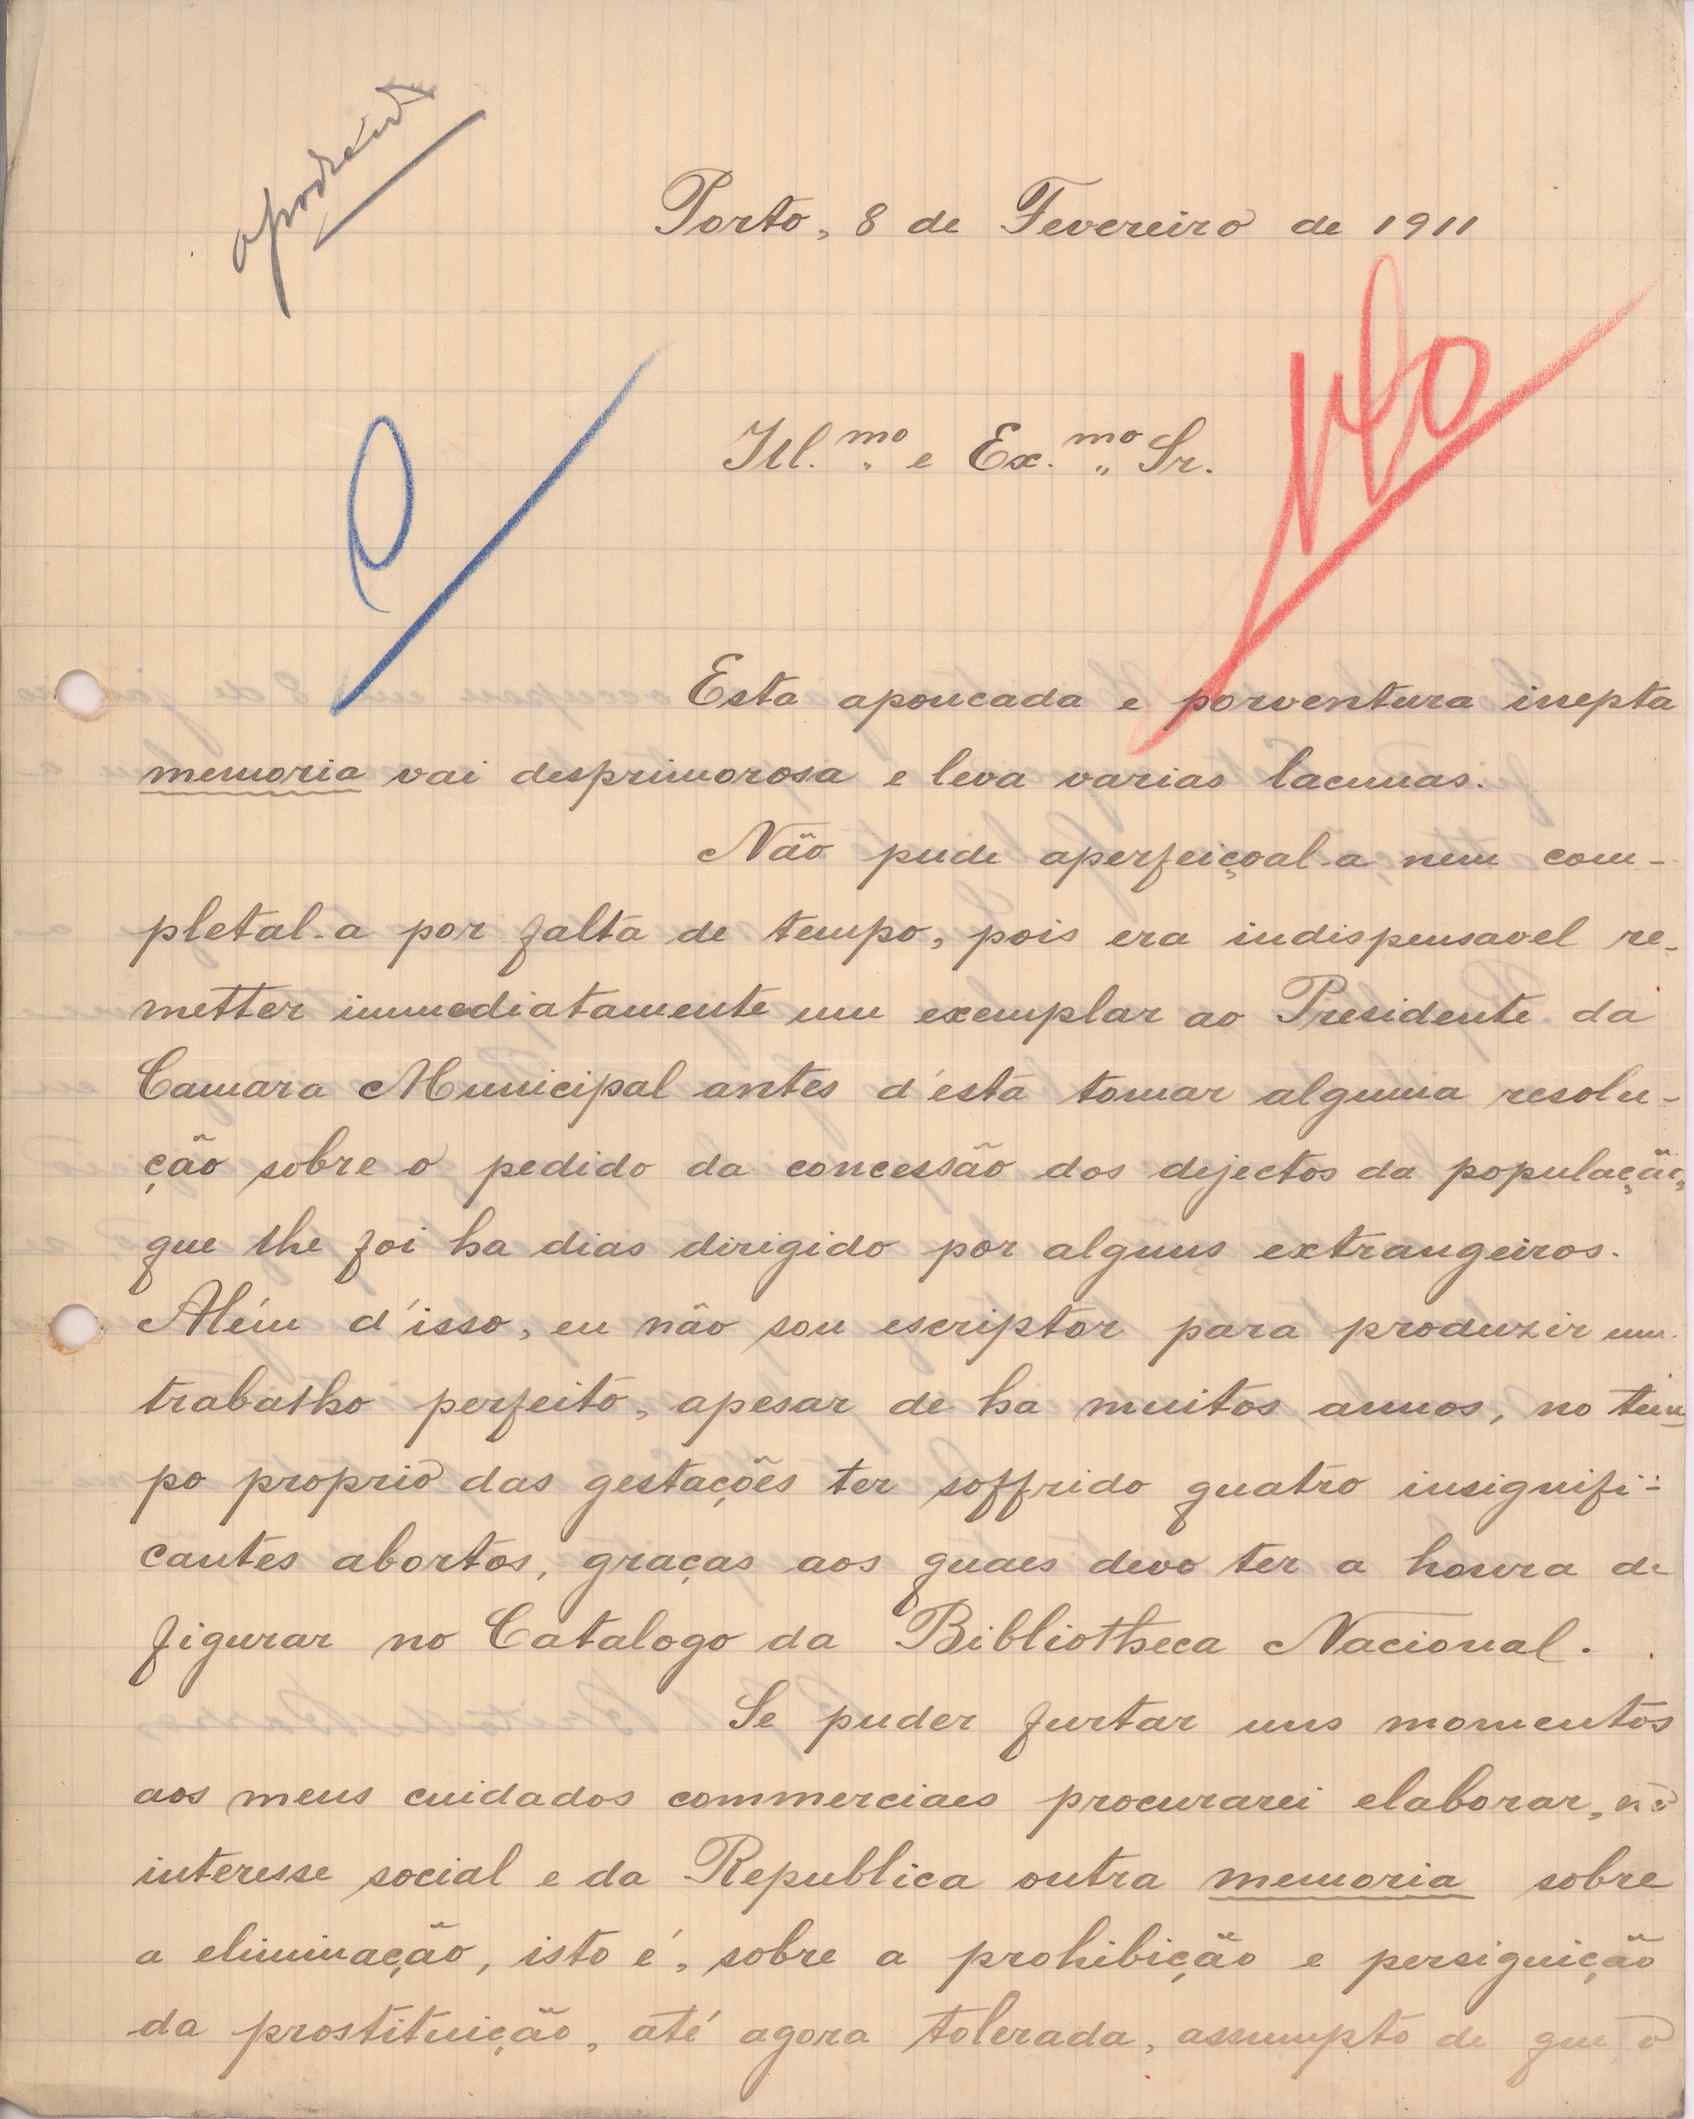 Porto, 8 de Fevereiro de 1911
Ill.mo e Ex.mo Sr.
Esta apoucada e porventura inepta
memoria vai desprimorosa e leva varias lacunas.
Não pude aperfeiçoal-a nem com-
pletal-a por falta de tempo, pois era indispensavel re-
metter immediatamente um exemplar ao Presidente da
Camara Municipal antes d'esta tomar alguma resolu-
ção sobre o pedido da concessão dos dejectos da população,
que lhe foi ha dias dirigido por alguns extrangeiros.
Além d'isso, eu não sou escriptor para produzir um
trabalho perfeito, apesar de ha muitos annos, no tem
po proprio das gestações ter soffrido quatro insignifi-
cantes abortos, graças aos quaes devo ter a honra de
figurar no Catalogo da Bibliotheca Nacional.
Se puder furtar uns momentos
aos meus cuidados commerciaes procurarei elaborar, no
interesse social e da Republica outra memoria sobre
a eliminação, isto é, sobre a prohibição e persiguição
da prostituição, até agora tolerada, assumpto de que o